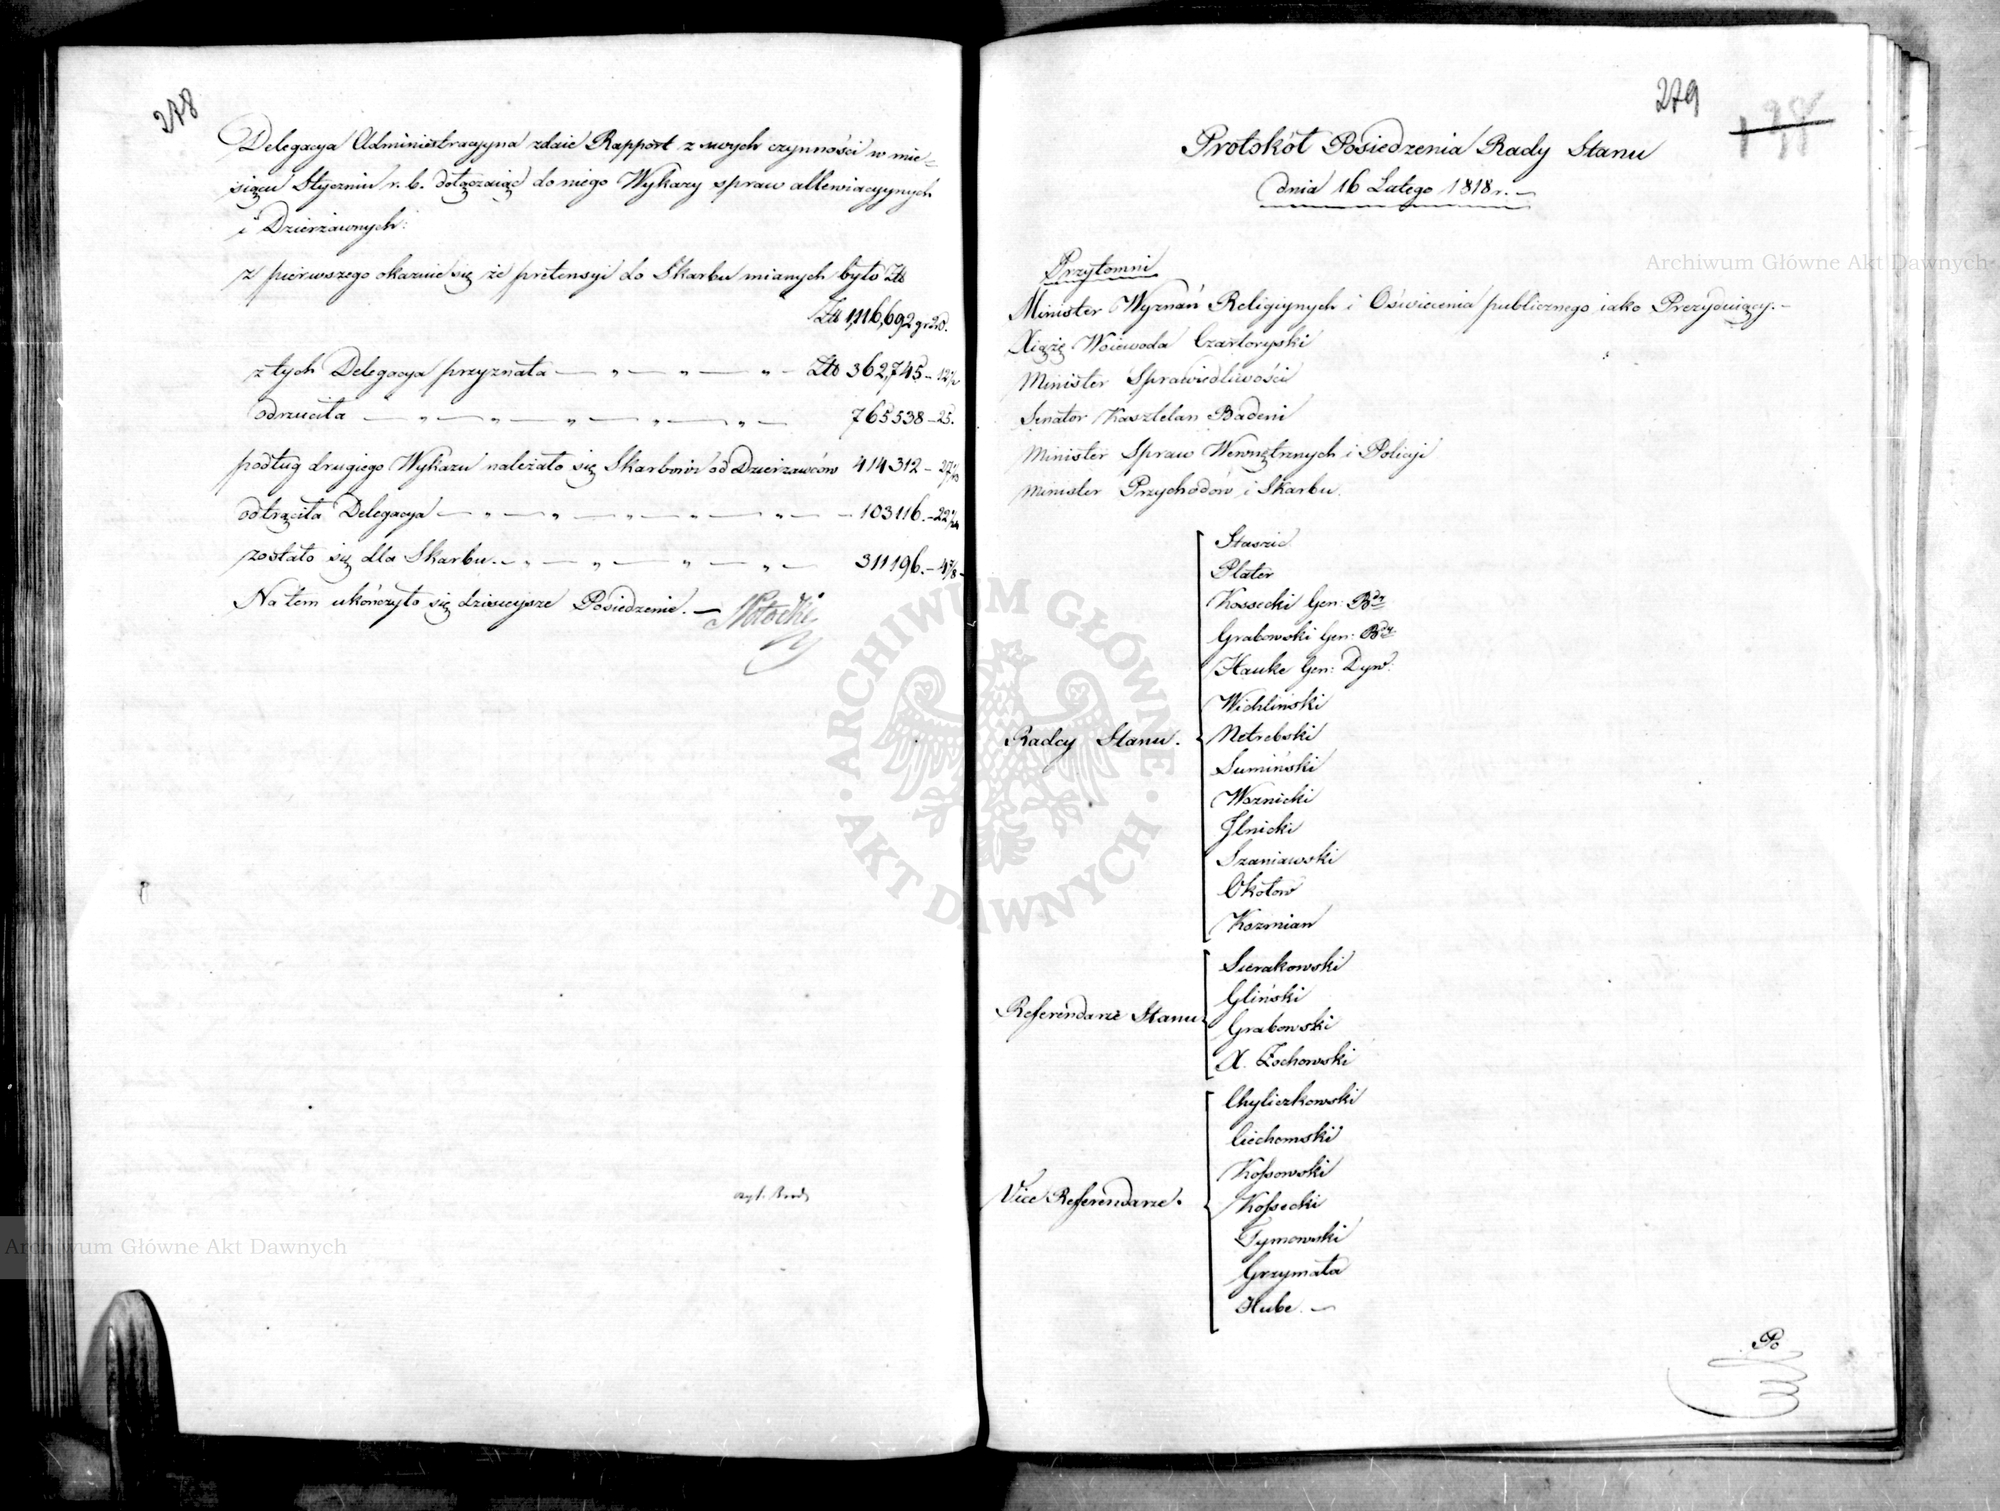 278
Delegacya Administracyyna zdaie Rapport z swych czynności w mie-
siącu Styczniu r. b. dołączaiąc do niego Wykazy spraw allewiacyynych
i Dzierżawnych:
z pierwszego okazuie się że pretensyi do Skarbu mianych było Złł
Złł 1,116,692 gr 20.
z tych Delegacya przyznała — „ — „ — „ — Złł 362,745 — 12½
odrzuciła — „ — „ — „ — „ — „ — 765538 — 25.
podług drugiego Wykazu należało się Skarbowi od Dzierżawców 414312 —
odtrąciła Delegacya — „ — „ — „ — „ — „ — 103116. —
zostało się dla Skarbu. — „ — „ — „ — „ — 311196. —
Na tem ukończyło się dzisieysze Posiedzenie. —
279
Protokół Posiedzenia Rady Stanu
dnia 16 Lutego 1818 r. —
Przytomni
Minister Wyznań Religiynych i Oświecenia publicznego iako Prezyduiący. —
Xiążę Woiewoda Czartoryski
Minister Sprawiedliwości
Senator Kasztelan Badeni
Minister Spraw Wewnętrznych i Policyi
Minister Przychodów i Skarbu.
Radcy Stanu.
Staszic
Plater
Kossecki Gen: Bdy
Grabowski Gen: Bdy
Hauke Gen: Dyw:
Wichliński
Netrebski
Sumiński
Woznicki
Ilnicki
Szaniawski
Okołow
Kozmian
Referendarze Stanu
Sierakowski
Gliński
Grabowski
X. Żochowski
Vice Referendarze.
Chyliczkowski
Ciechomski
Kossowski
Kossecki
Tymowski
Grzymała
Hube. —
Po
Archiwum Główne Akt Dawnych
Archiwum Główne Akt Dawnych
ARCHIWUM GŁÓWNE
AKT DAWNYCH